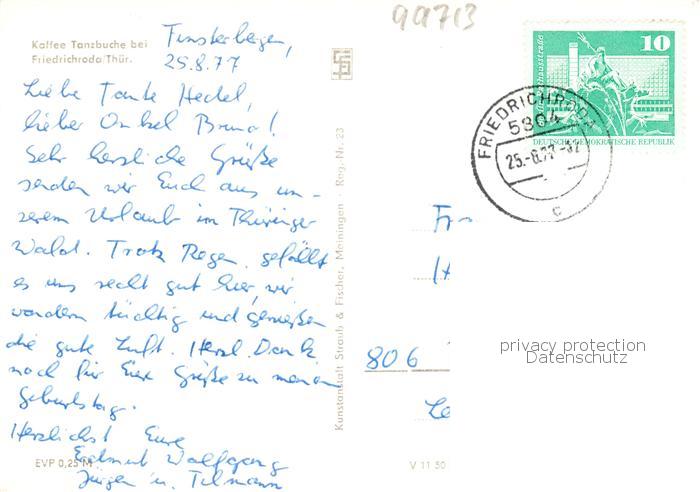 99713
Kaffee Tanzbuche bei
Friedrichroda/Thür.
Finsterbergen,
25.8.77
Liebe Tante Hedel,
lieber Onkel Bruno!
Sehr herzliche Grüße
senden wir Euch aus un-
serem Urlaub im Thüringer
Wald. Trotz Regen gefällt
es uns recht gut hier, wir
wandern tüchtig und genießen
die gute Luft. Herzl. Dank
noch für Eure Grüße zu meinem
Geburtstag.
Herzlichst Eure
Wolfgang
Jürgen u. Tilmann
EVP 0,25 M
Kunstanstalt Straub & Fischer, Meiningen · Reg.-Nr. 23
V 11 50
10
DEUTSCHE DEMOKRATISCHE REPUBLIK
FRIEDRICHRODA
5804
25.-8.77
c
Fr
806
Le
privacy protection
Datenschutz